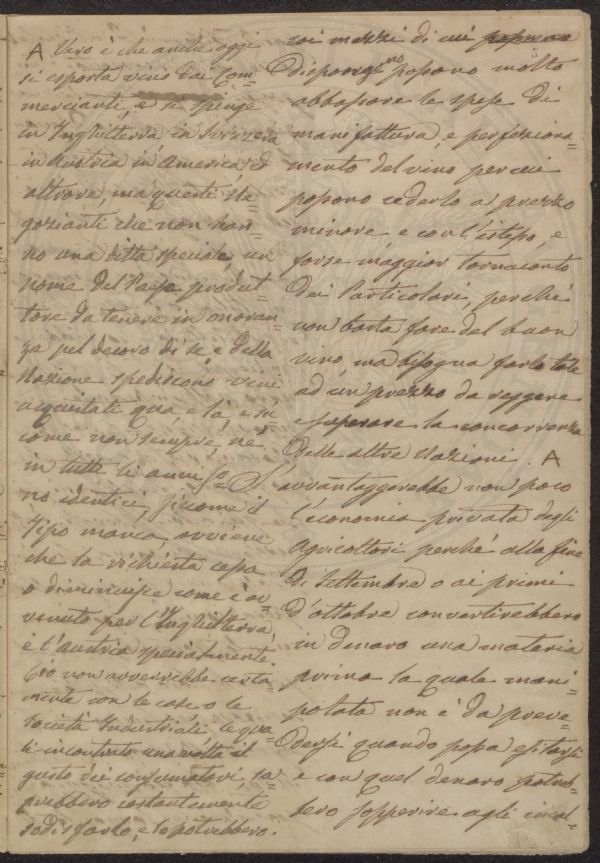 A Vero è che anche oggi
si esporta vino dai Com=
mercianti, e si spinge
in Inghilterra in Svizzera
in Austria in America, ed
altrove, ma questi Ne=
gozianti che non han=
no una ditta speciale, un
nome del Paese produt=
tore da tenere in onoran=
za pel decoro di se, e della
Nazione spediscono vini
acquistati qua, e là, e sic=
come non sempre, né
in tutti li anni so=
no identici, siccome il
tipo manca, avviene
che la richiesta cessa
o diminuisce come è av=
venuto per l'Inghilterra,
e l'Austria specialmente
Ciò non avverrebbe certa=
mente con le case o le
società Industriali le qua=
li incontrato una volta il
gusto dei consumatori, sa=
prebbero costantemente
sodisfarlo, e lo potrebbero.
mezzi di cui
dispongono possono molto
abbassare le spese di
manifattura, e perfeziona=
mento del vino per cui
possono cederlo a prezzo
minore e con l'istesso, e
forse maggior tornaconto
dei Particolari, perché
non basta fare del buon
vino, ma bisogna farlo tale
ad un prezzo da reggere
e superare la concorrenza
delle altre Nazioni. A
S' avvantaggerebbe non poco
l'economia privata degli
agricoltori perché alla fine
di Settembre o ai primi
d'ottobre convertirebbero
in denaro una materia
prima la quale mani=
polata non è da preve=
dersi quando possa esitarsi
e con quel denaro potreb=
bero sopperire agli